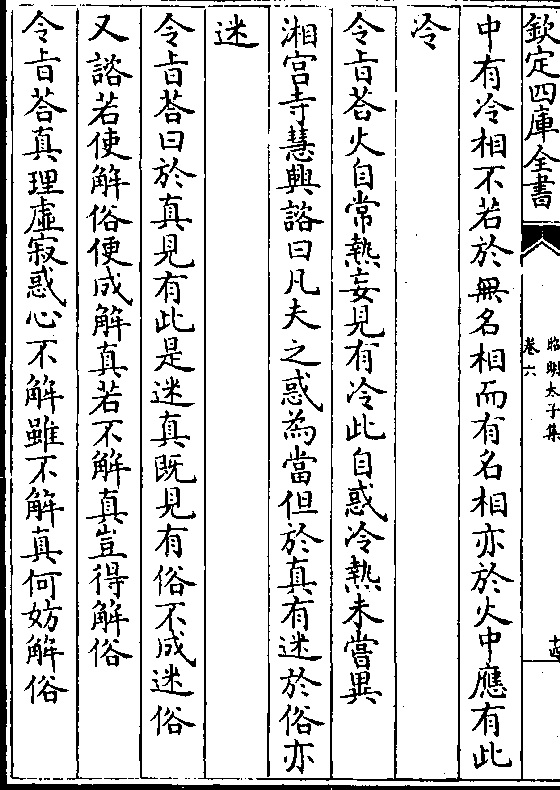 欽定四庫全書
昭明太子集
卷六
十四
中有冷相不若於無名相而有名相亦於火中應有此
冷
令旨荅火自常熱妄見有冷此自惑冷熱未嘗異
湘宫寺慧興諮曰凡夫之惑為當但於真有迷於俗亦
迷
令旨荅曰於真見有此是迷真既見有俗不成迷俗
又諮若使解俗便成解真若不解真豈得解俗
令旨荅真理虛寂惑心不解雖不解真何妨解俗